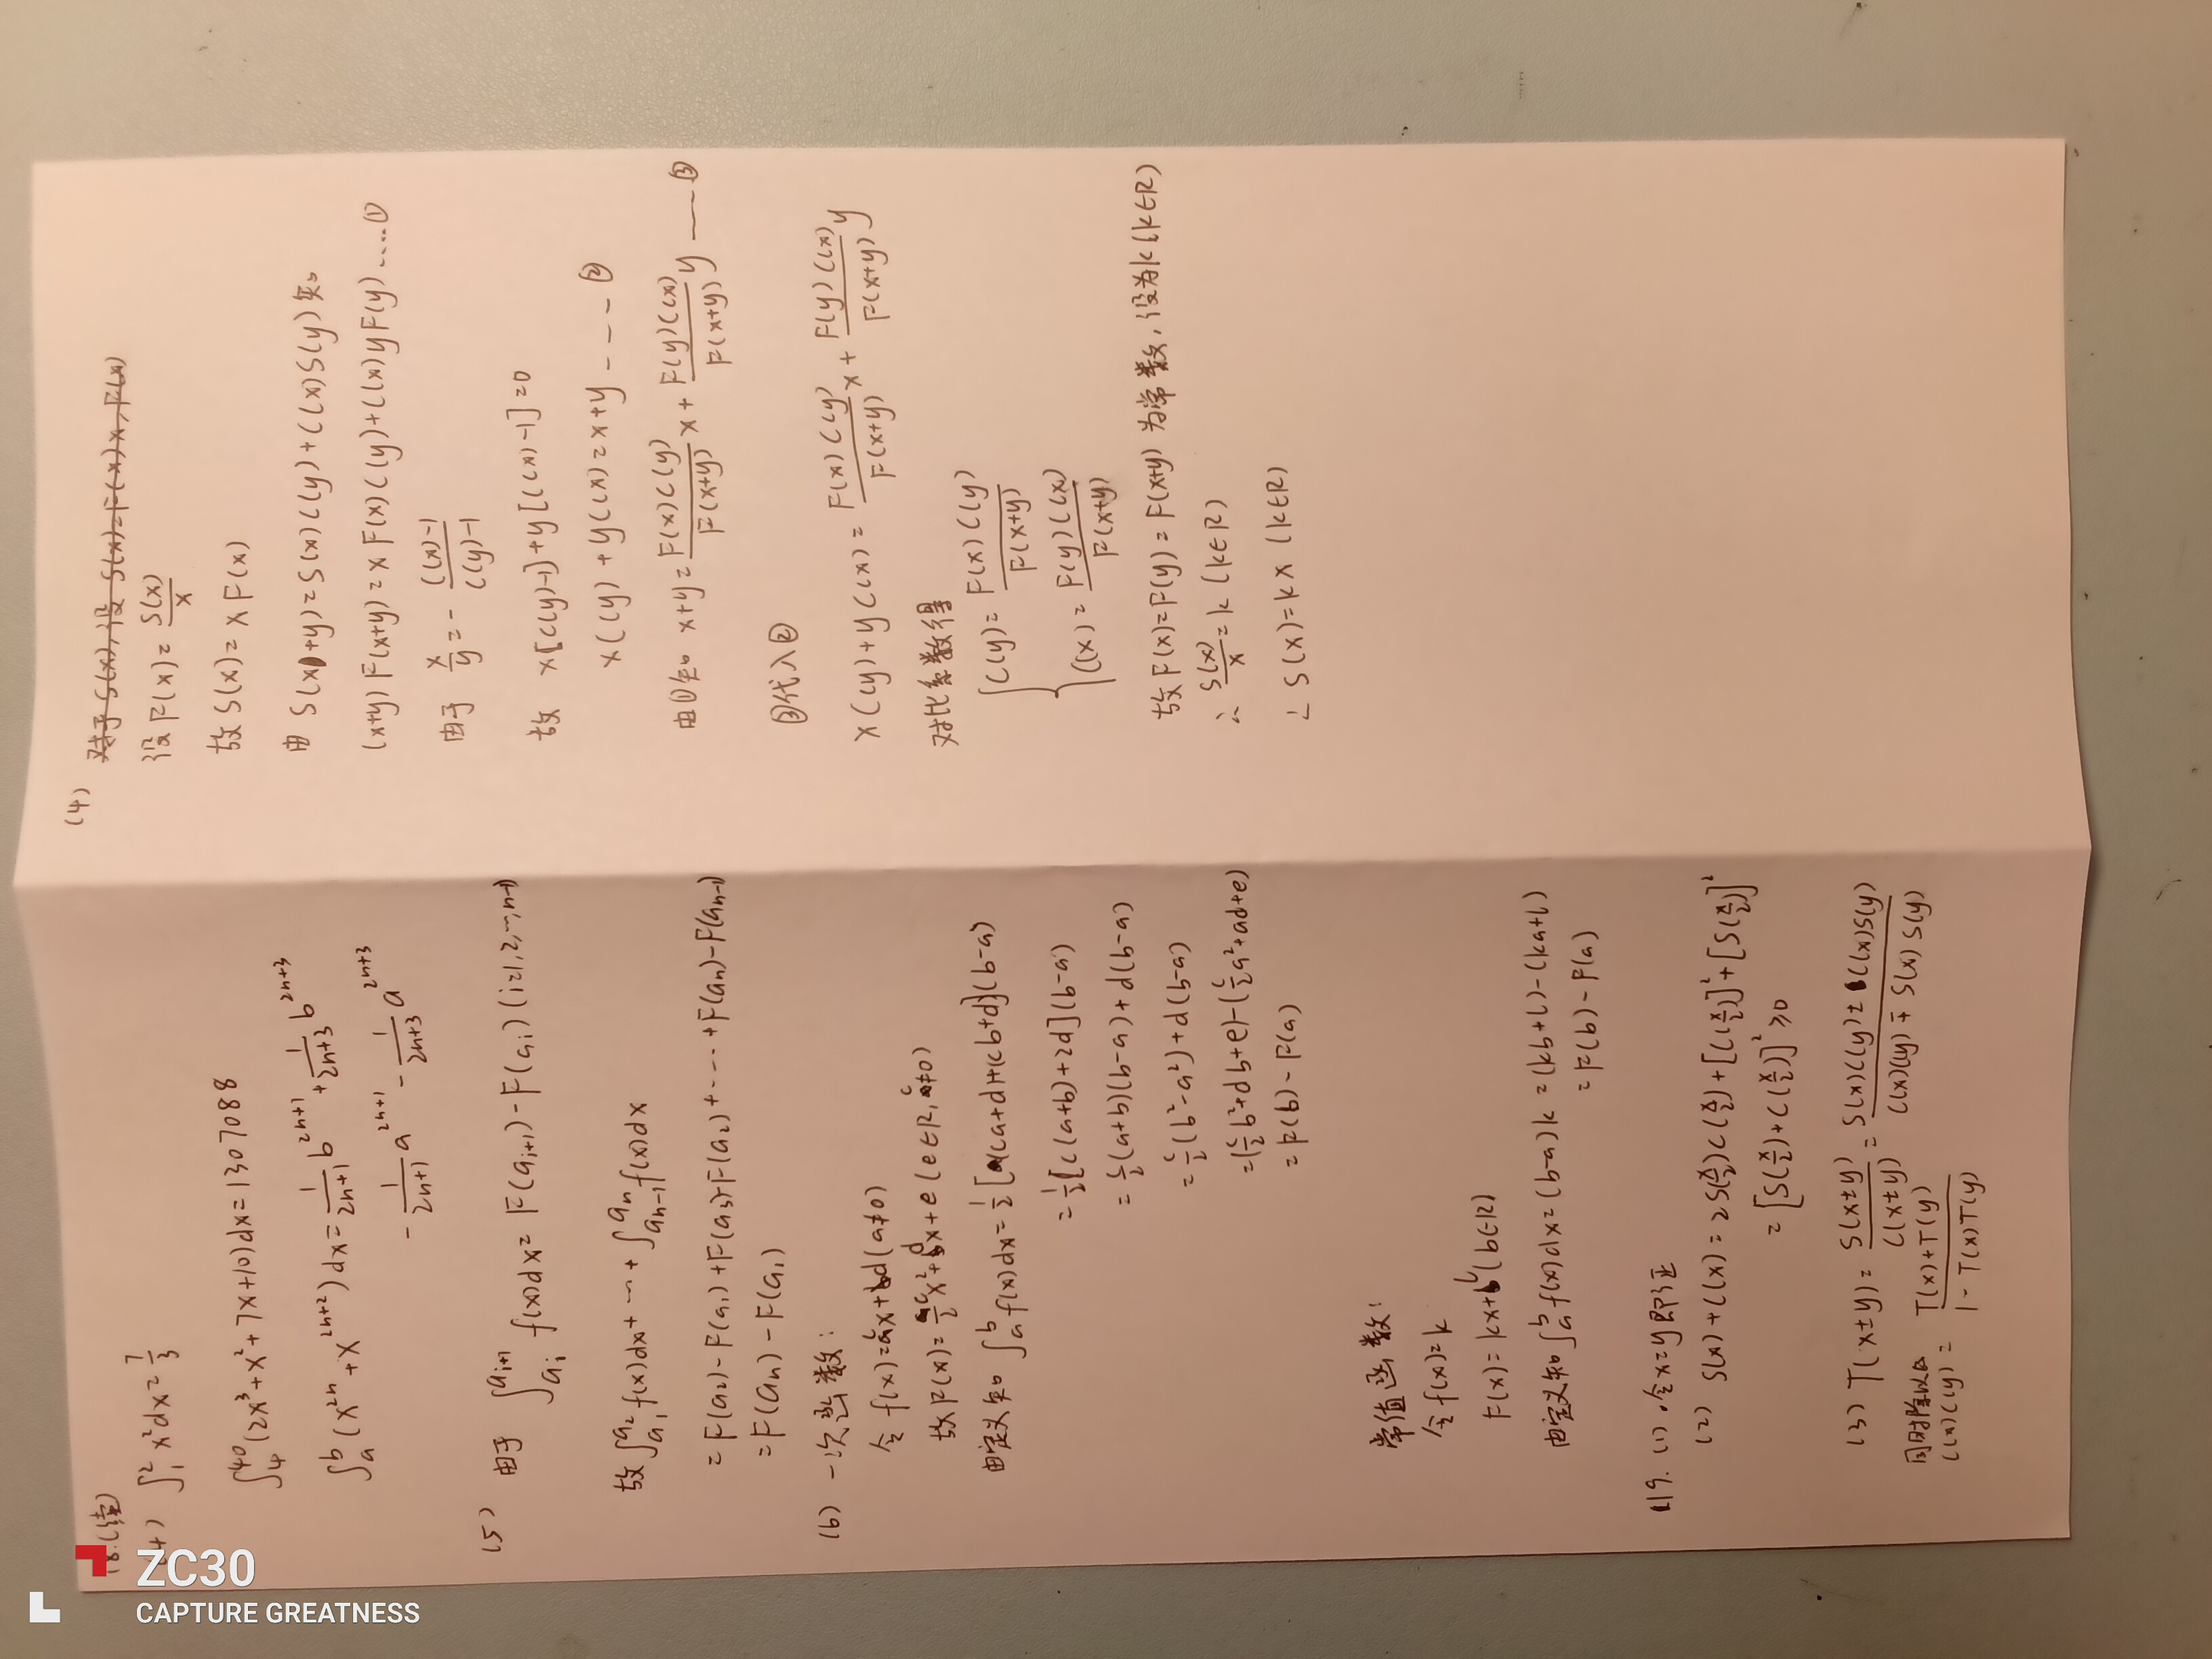 18.(续)
(4) ∫₁² x²dx = 7/3
∫₄⁴⁰ (2x³+x²+7x+10)dx = 1307088
∫ₐᵇ (x²ⁿ+x²ⁿ⁺²)dx = 1/(2n+1) b²ⁿ⁺¹ + 1/(2n+3) b²ⁿ⁺³
- 1/(2n+1) a²ⁿ⁺¹ - 1/(2n+3) a²ⁿ⁺³
(5) 由于 ∫_{aᵢ}^{aᵢ₊₁} f(x)dx = F(aᵢ₊₁)-F(aᵢ) (i=1,2,…,n-1)
故 ∫_{a₁}^{a₂} f(x)dx + … + ∫_{aₙ₋₁}^{aₙ} f(x)dx
= F(a₂)-F(a₁)+F(a₃)-F(a₂)+…+F(aₙ)-F(aₙ₋₁)
= F(aₙ)-F(a₁)
(6) 一次函数:
令 f(x)=cx+d(a≠0)
故 F(x)= c/2 x²+dx+e (e∈R, c≠0)
由定义知 ∫ₐᵇ f(x)dx = 1/2 [(ca+d)+(cb+d)](b-a)
= 1/2 [c(a+b)+2d](b-a)
= c/2 (a+b)(b-a)+d(b-a)
= c/2 (b²-a²)+d(b-a)
= (c/2 b²+db+e)-(c/2 a²+ad+e)
= F(b)-F(a)
常值函数:
令 f(x)=k
F(x)=kx+l(b∈R)
由定义知 ∫ₐᵇ f(x)dx = (b-a)k = (kb+l)-(ka+l)
= F(b)-F(a)
19. (1). 令 x=y 即证
(2) S(x)+C(x) = 2S(x/2)C(x/2)+[C(x/2)]²+[S(x/2)]²
= [S(x/2)+C(x/2)]² ≥0
(3) T(x±y) = S(x±y)/C(x±y) = (S(x)C(y)±C(x)S(y))/(C(x)C(y)∓S(x)S(y))
同时除以
C(x)C(y) = (T(x)+T(y))/(1-T(x)T(y))
(4) 对于S(x),设 S(x)=F(x)x,F(x)
设 F(x)= S(x)/x
故 S(x)= xF(x)
由 S(x+y)=S(x)C(y)+C(x)S(y) 知
(x+y)F(x+y)=xF(x)C(y)+C(x)yF(y)....①
由于 x/y = - (C(x)-1)/(C(y)-1)
故 x[C(y)-1]+y[C(x)-1]=0
xC(y)+yC(x)=x+y ---- ②
由①知 x+y = F(x)C(y)/F(x+y) x + F(y)C(x)/F(x+y) y —— ③
③代入②
xC(y)+yC(x) = F(x)C(y)/F(x+y) x + F(y)C(x)/F(x+y) y
对比系数得
{ C(y) = F(x)C(y)/F(x+y)
C(x) = F(y)C(x)/F(x+y)
故 F(x)=F(y)=F(x+y) 为常数,设为k(k∈R)
∴ S(x)/x = k (k∈R)
∴ S(x)=kx (k∈R)
ZC30
CAPTURE GREATNESS